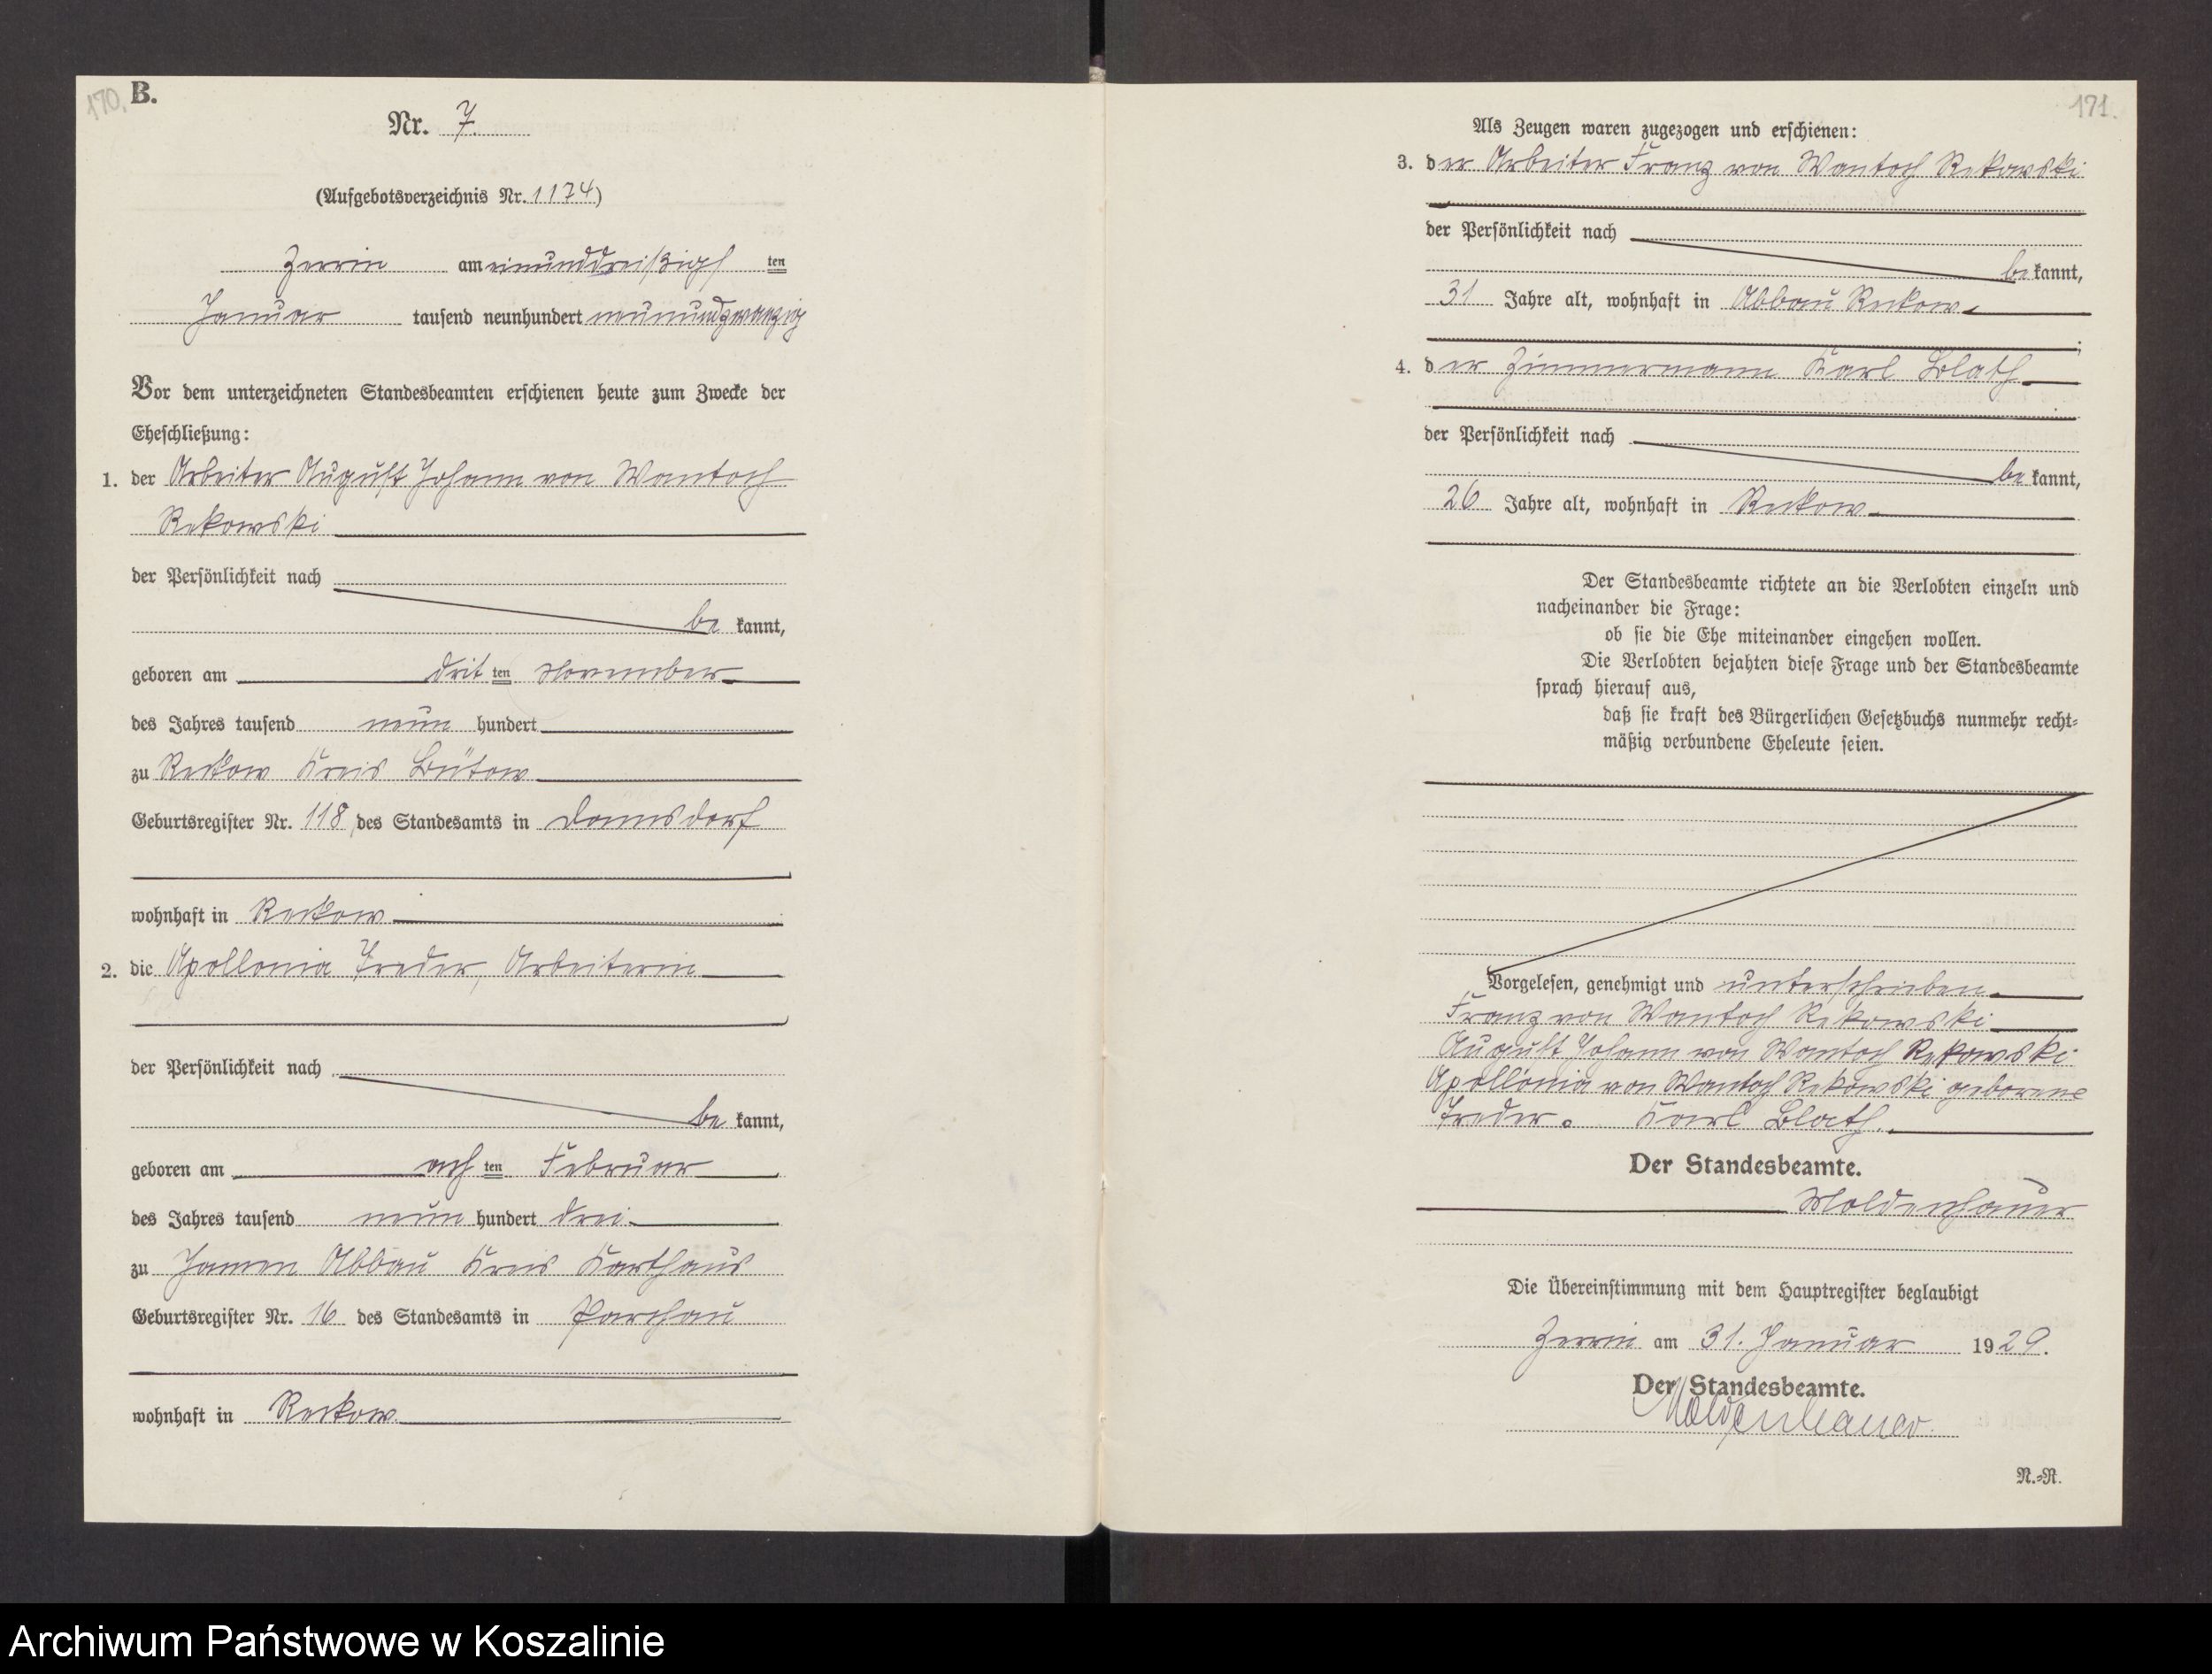 170.
B.
Nr. 7.
(Aufgebotsverzeichnis Nr. 1174)
Zerrin am einunddreißigsten
Januar tausend neunhundert neunundzwanzig
Vor dem unterzeichneten Standesbeamten erschienen heute zum Zwecke der
Eheschließung:
1. der Arbeiter August Johann von Wantoch
Rekowski
der Persönlichkeit nach
be kannt,
geboren am dritten November
des Jahres tausend neun hundert
zu Reckow Kreis Bütow
Geburtsregister Nr. 118 des Standesamts in
wohnhaft in Reckow
2. die Apollonia Treder, Arbeiterin
der Persönlichkeit nach
be kannt,
geboren am achten Februar
des Jahres tausend neun hundert drei
zu Jamen Abbau Kreis Karthaus
Geburtsregister Nr. 16 des Standesamts in Parchau
wohnhaft in Reckow
171.
Als Zeugen waren zugezogen und erschienen:
3. der Arbeiter Franz von Wantoch Rekowski
der Persönlichkeit nach
be kannt,
31 Jahre alt, wohnhaft in Abbau Reckow
;
4. der Zimmermann Karl Blath
der Persönlichkeit nach
be kannt,
26 Jahre alt, wohnhaft in Reckow
Der Standesbeamte richtete an die Verlobten einzeln und
nacheinander die Frage:
ob sie die Ehe miteinander eingehen wollen.
Die Verlobten bejahten diese Frage und der Standesbeamte
sprach hierauf aus,
daß sie kraft des Bürgerlichen Gesetzbuchs nunmehr recht-
mäßig verbundene Eheleute seien.
Vorgelesen, genehmigt und unterschrieben
Franz von Wantoch Rekowski
August Johann von Wantoch Rekowski
Apollonia von Wantoch Rekowski geborene
Treder. Karl Blath.
Der Standesbeamte.
Moldenhauer
Die Übereinstimmung mit dem Hauptregister beglaubigt
Zerrin am 31. Januar 1929.
Der Standesbeamte.
Moldenhauer
N.-R.
Archiwum Państwowe w Koszalinie